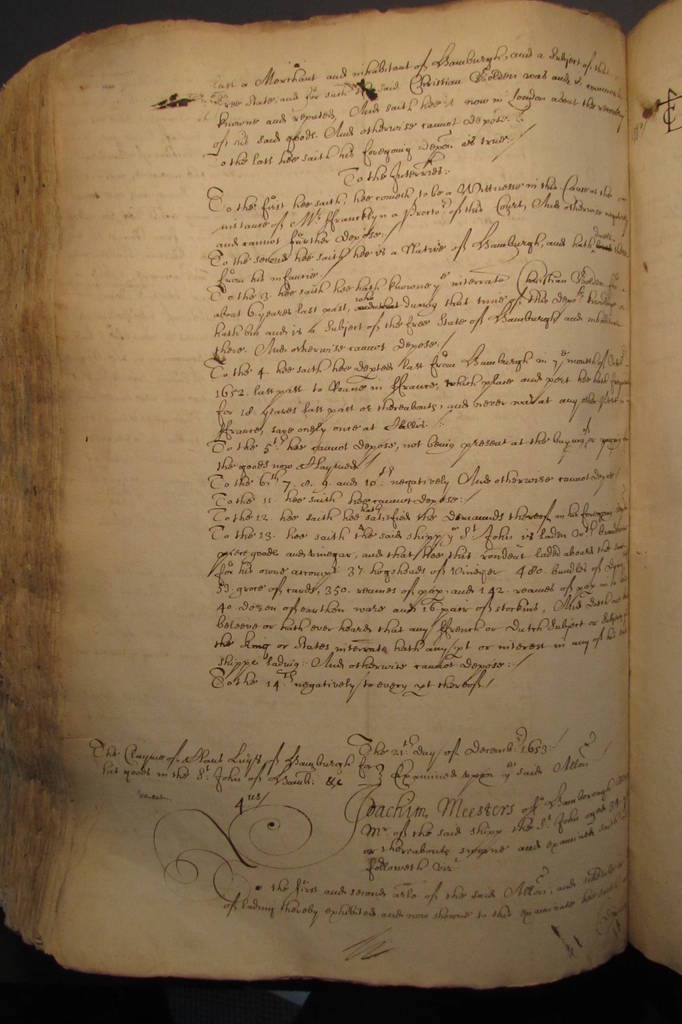 last a Merchant and inhabitant of Hamburgh, and a Subject of that
free State, and for such the said Christian Bolden was and is commonly
knowne and reputed, And saith hee is now in London about the recovery
of his said goods. And otherwise cannot depose./
To the last hee saith his foregoing deposn is true./
To the Interries:
To the first hee saith, hee cometh to be a Wittnesse in this Cause at the
instance of Mr ffrancklyn a Proctor of this Court, And otherwise negatively
and cannot further depose./
To the second hee saith hee is a Native of Hamburgh, and hath
from his infancie
To the 3 hee saith hee hath knowne ye interrate Christian Bolden for
about 6 yeares last past, who during that time of this depots knowledge
hath bin and is a Subject of the free State of Hamburgh and inhabitant
there. And otherwise cannot depose./
To the 4 hee saith hee depted last from Hamburgh in ye month of
1652 last past to Roane in ffrance, which place and port hee hath
for 18 yeares last past or thereabouts, and never was at any other Port in
ffrance, save onely once at
To the 5th hee cannot depose, not being present at the buying or
the goods now Claymed/
To the 6th 7. 8. 9 and 10th negatively And otherwise cannot depose/
To the 11. hee saith hee cannot depose:/
To the 12. hee saith hee hath satisfied the Demaunds thereof in his foregoing
To the 13. hee saith the said shipp ye St John is laden with
goods and vinegar, and that hee this rendent laded aboard the same
for his owne accompt 37 hogsheads of Vineger 480 bundles of
53 groce of cards, 350. reames of pap. and 142. reames of pap
40 dozen of earthen ware and 16 pair of stockins, And doth not
beleeve or hath ever heard that any ffrench or Dutch Subject or Subjects
the King or States interrate hath any pt or interest in any of the said
shipps lading: And otherwise cannot depose:/
To the 14th negatively to every pt thereof./
The Clayme of Paul Luyts of Hamburgh for
his goods in the St John of Hamb: &c
The 21th day of Decemb: 1653:/
Examined upon ye said Allon
4us/
Joachim Meesters of Hamborough
Mr of the said shipp the St John aged
or thereabouts sworne and examined saith
followeth viz
To the first and second arles of the said Allon, and
of lading thereby exhibited and now showne to this examinate hee saith